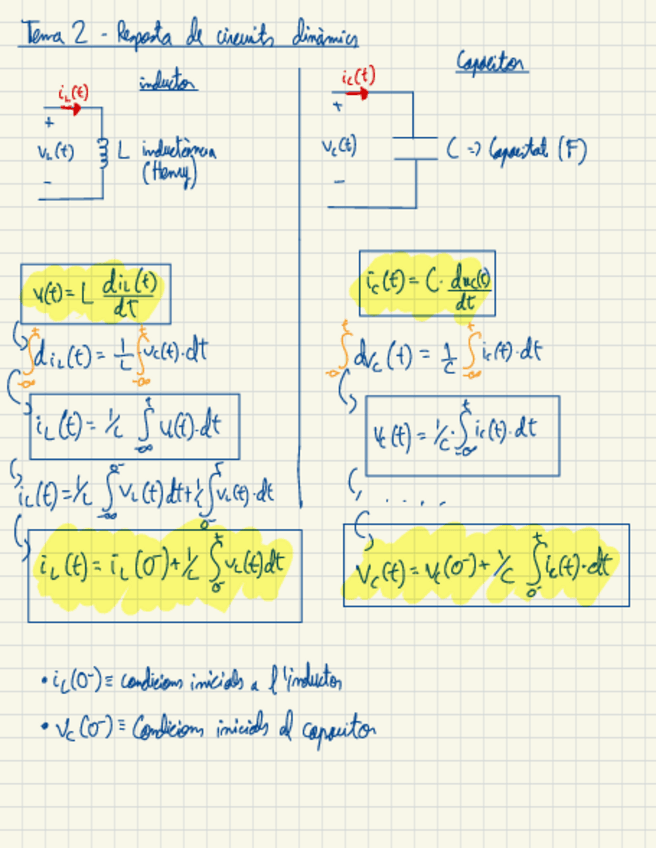 Tema 2 - Resposta de circuits dinàmics
inductor
i_L(t)
+
v_L(t)
-
L inductància
(Henry)
v_L(t) = L di_L(t)/dt
∫_{-∞}^{t} di_L(t) = 1/L ∫_{-∞}^{t} v_L(t)·dt
i_L(t) = 1/L ∫_{-∞}^{t} v_L(t)·dt
i_L(t) = 1/L ∫_{-∞}^{0-} v_L(t) dt + 1/L ∫_{0-}^{t} v_L(t)·dt
i_L(t) = i_L(0-) + 1/L ∫_{0-}^{t} v_L(t) dt
Capacitor
i_C(t)
+
v_C(t)
-
C => Capacitat (F)
i_C(t) = C· dv_C(t)/dt
∫_{-∞}^{t} dv_C(t) = 1/C ∫_{-∞}^{t} i_C(t)·dt
v_C(t) = 1/C·∫_{-∞}^{t} i_C(t)·dt
. . . .
v_C(t) = v_C(0-) + 1/C ∫_{0-}^{t} i_C(t)·dt
• i_L(0-) ≡ condicions inicials a l'inductor
• v_C(0-) ≡ Condicions inicials al capacitor